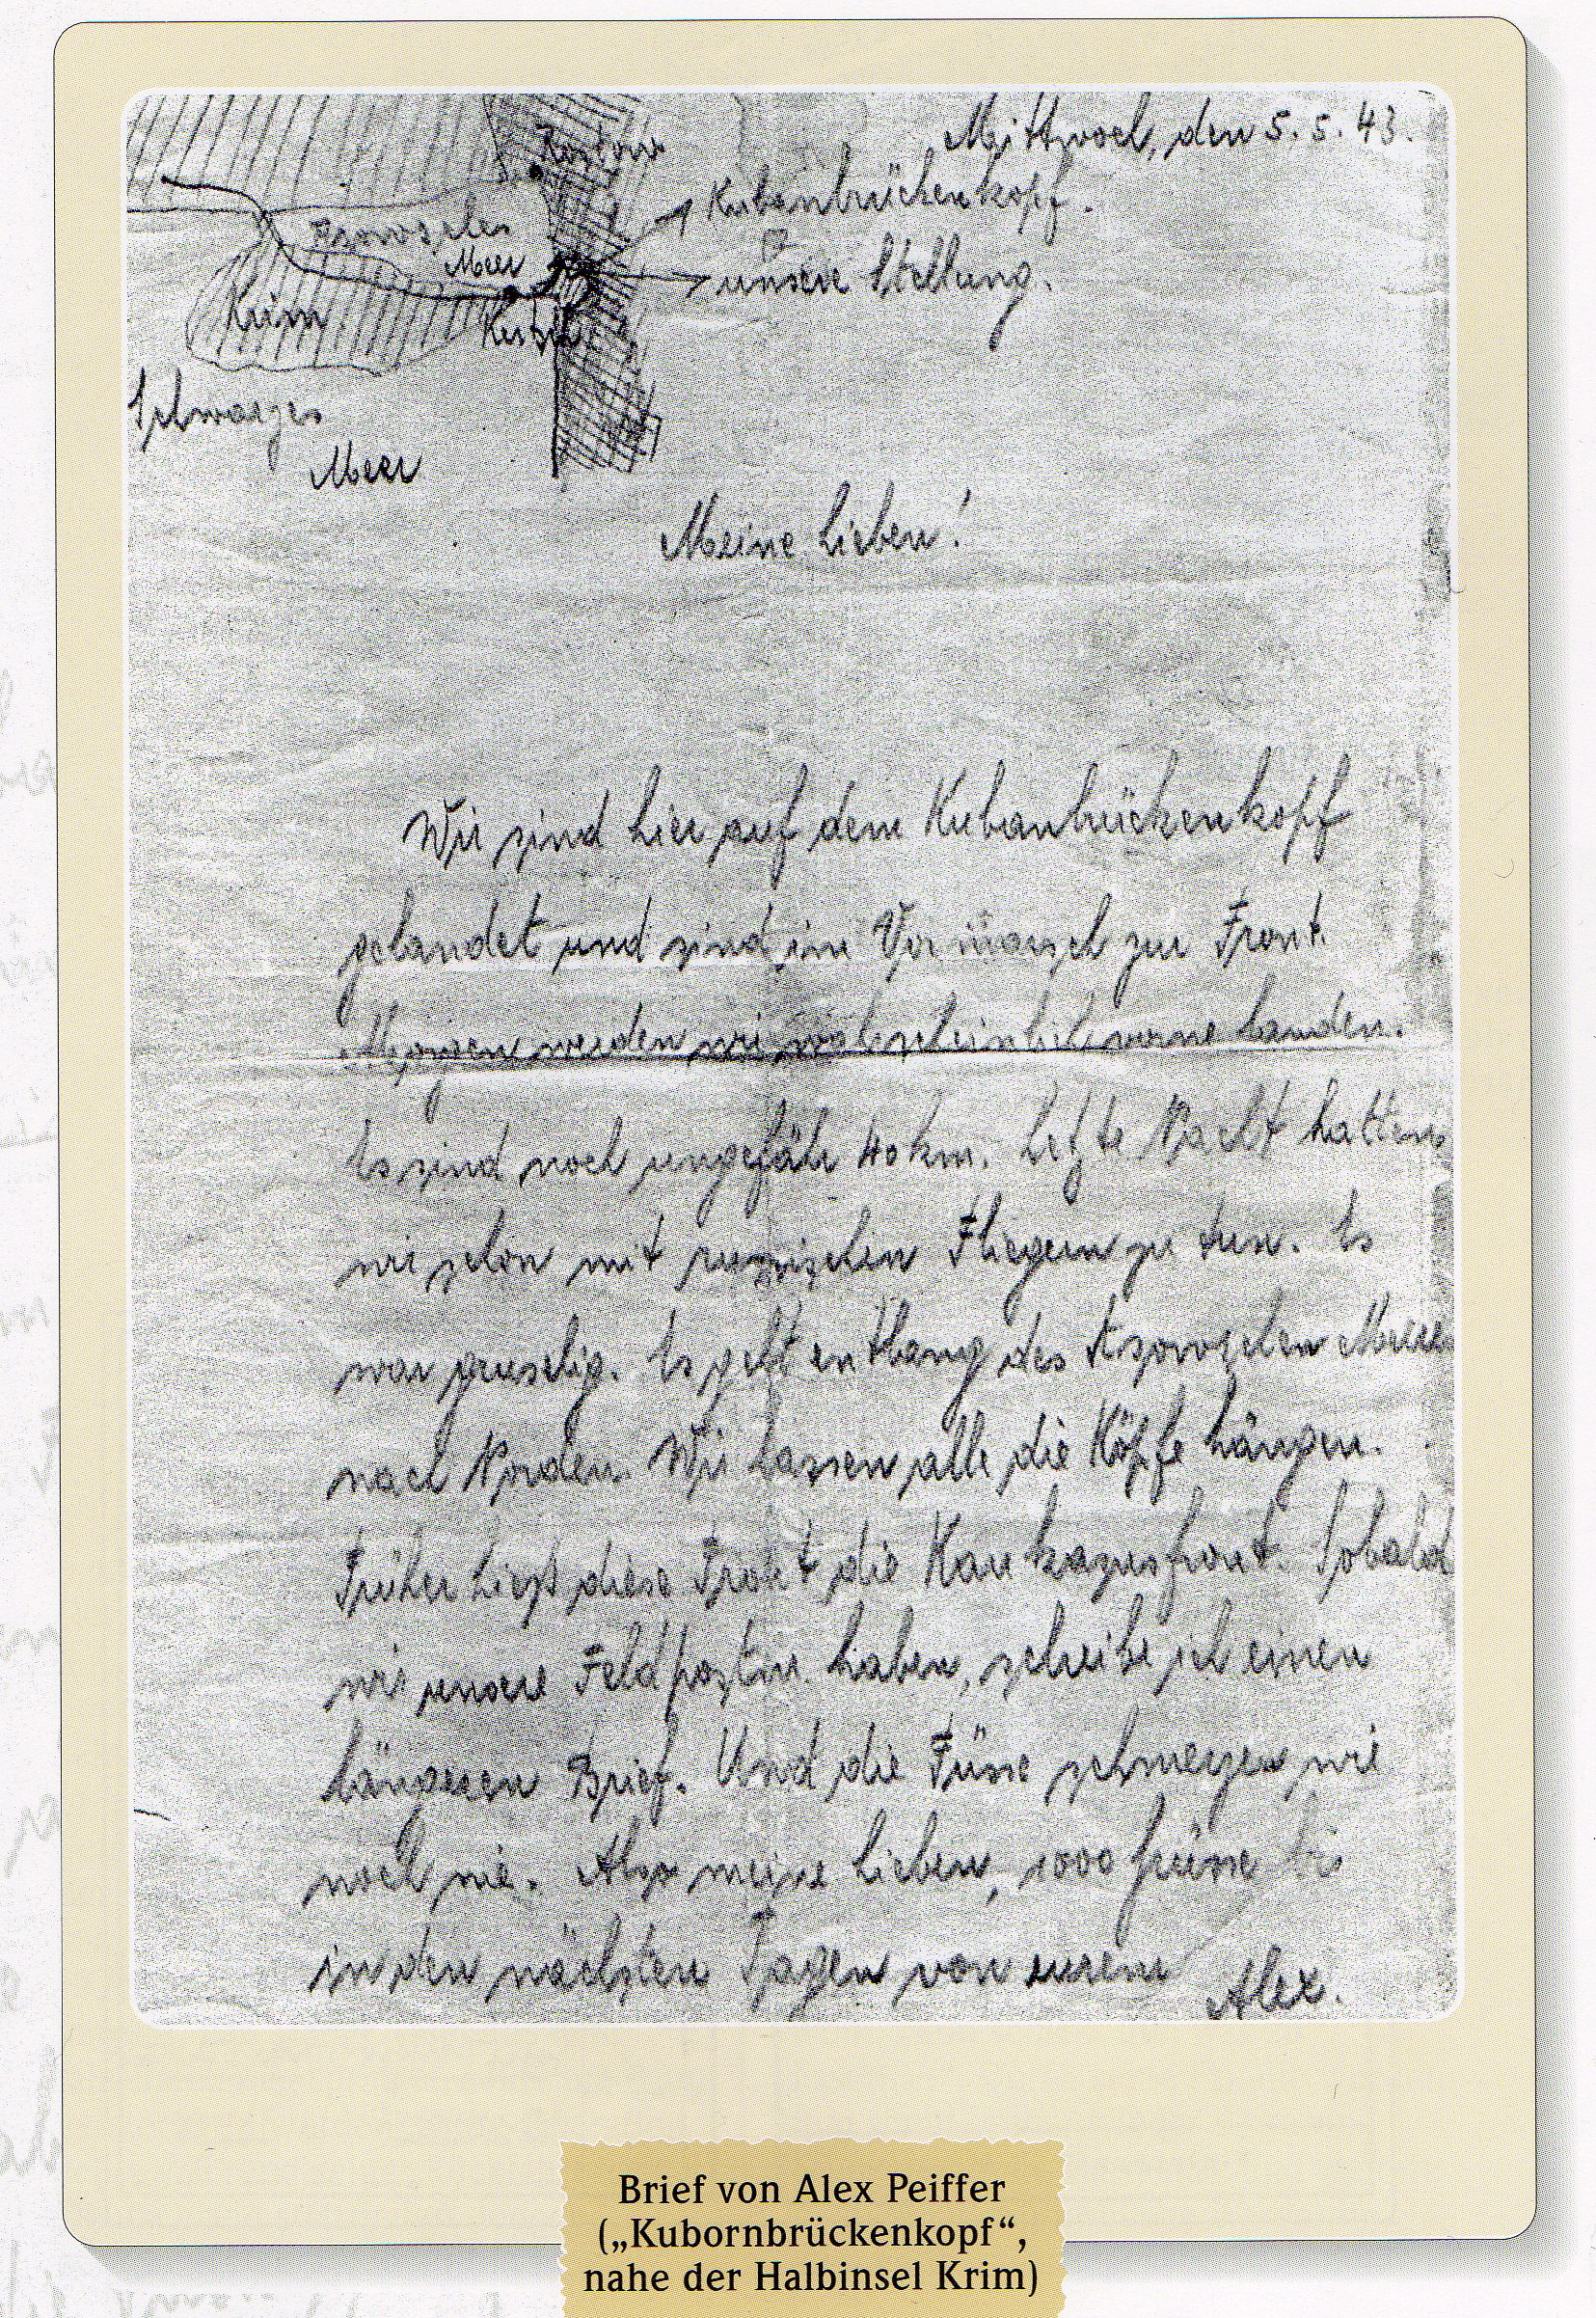 Mittwoch, den 5. 5. 43.
Rostow
Kubanbrückenkopf.
Asowsches
Meer
unsere Stellung.
Krim
Kertsch
Schwarzes
Meer
Meine Lieben!
Wir sind hier auf dem Kubanbrückenkopf
gelandet und sind im Vormarsch zur Front.
Morgen werden wir wahrscheinlich vorne landen.
Es sind noch ungefähr 40 km. Letzte Nacht hatten
wir schon mit russischen Fliegern zu tun. Es
war gruselig. Es geht entlang des Asowschen Meeres
nach Norden. Wir lassen alle die Köpfe hängen.
Früher hieß diese Front die Kaukasusfront. Sobald
wir unsere Feldpostnr. haben, schreibe ich einen
längeren Brief. Und die Füsse schmerzen wie
noch nie. Also meine Lieben, 1000 Grüsse bis
in den nächsten Tagen von eurem Alex.
Brief von Alex Peiffer
(„Kubornbrückenkopf“,
nahe der Halbinsel Krim)